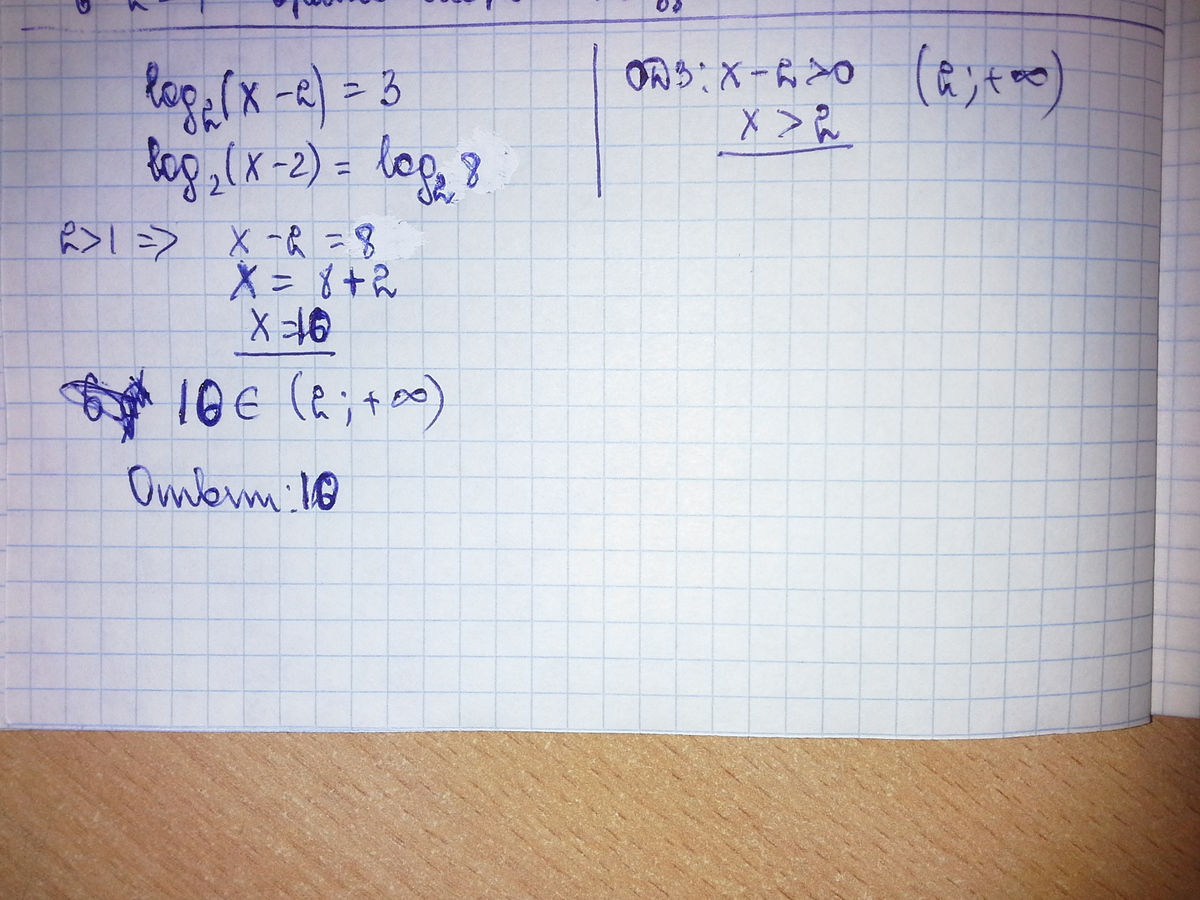 log₂(x-2) = 3
log₂(x-2) = log₂ 8
2>1 => x-2 = 8
x = 8+2
x = 10
10 ∈ (2; +∞)
Ответ: 10
ОДЗ: x-2>0 (2; +∞)
x > 2